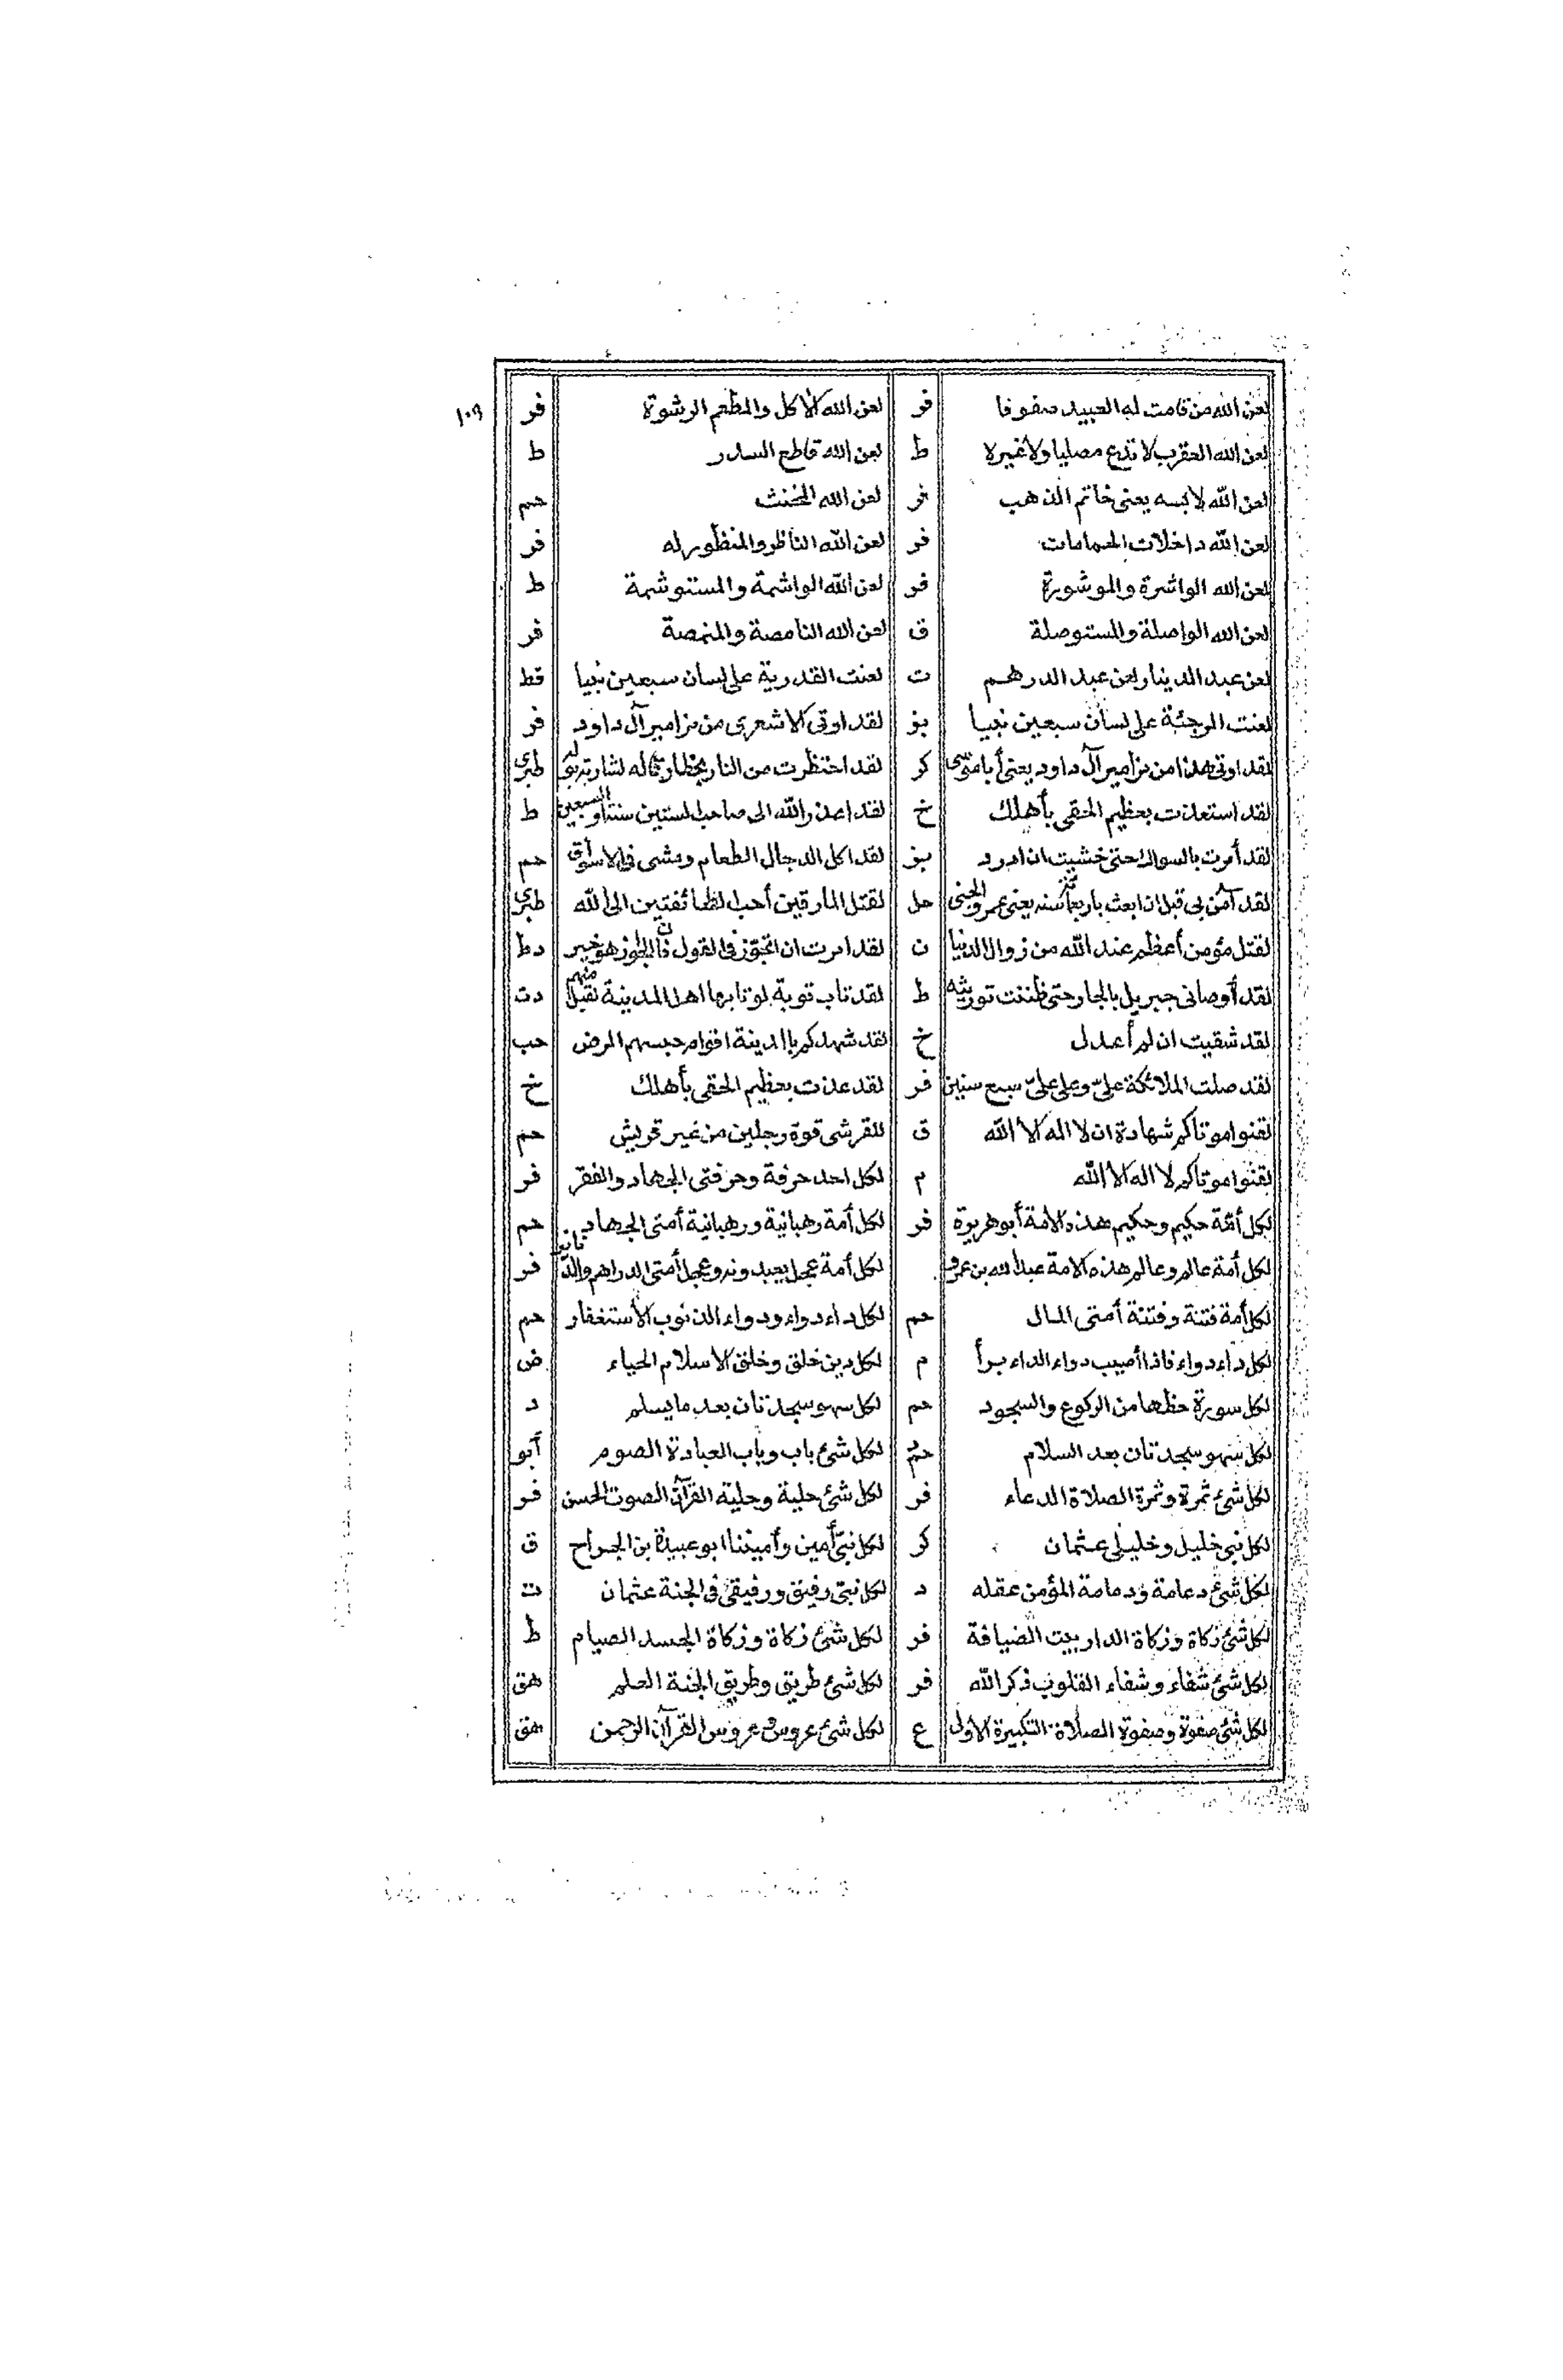 لعن الله من قامت له العبيد صفوفا فر لعن الله الآكل والمطعم الرشوة فر
لعن الله العقرب لا تدع مصليا ولا غيره ط لعن الله قاطع السدر ط
لعن الله لابسه يعنى خاتم الذهب فر لعن الله المخنث حم
لعن الله داخلات الحمامات فر لعن الله الناظر والمنظور له فر
لعن الله الواشرة والموشورة فر لعن الله الواشمة والمستوشمة ط
لعن الله الواصلة والمستوصلة ق لعن الله النامصة والمنمصة فر
لعن عبد الدينار لعن عبد الدرهم ت لعنت القدرية على لسان سبعين نبيا قط
لعنت المرجئة على لسان سبعين نبيا بز لقد اوتى الاشعرى من مزامير آل داود فر
لقد اوتى هذا من مزامير آل داود يعنى أبا موسى كر لقد احتظرت من النار بحظار طبرى
لقد استعذت بعظيم الحقى بأهلك خ لقد اعذر الله الى صاحب الستين سنة والسبعين ط
لقد أمرت بالسواك حتى خشيت ان ادرد بز لقد اكل الدجال الطعام ومشى فى الاسواق حم
لقد آمن بى قبل ان ابعث باربعمائة سنه يعنى عمرو الجنى حل لقتل المارقين أحب الى الله طبرى
لقتل مؤمن أعظم عند الله من زوال الدنيا ن لقد امرت ان اتجوز فى القول فان الجواز هو خير دط
لقد أوصانى جبريل بالجار حتى ظننت توريثه ط لقد تاب توبة لو تابها اهل المدينة لقبل منهم دت
لقد شقيت ان لم أعدل خ لقد شهدكم بالمدينة اقوام حبسهم المرض حب
لقد صلت الملائكة علىّ وعلى علىّ سبع سنين فر لقد عذت بعظيم الحقى بأهلك خ
لقنوا موتاكم شهادة ان لا اله الا الله ق للقرشى قوة رجلين من غير قريش حم
لقنوا موتاكم لا اله الا الله م لكل احد حرفة وحرفتى الجهاد والفقر فر
لكل أمّة حكيم وحكيم هذه الامة أبو هريرة فر لكل أمة رهبانية ورهبانية أمتى الجهاد حم
لكل أمة عالم وعالم هذه الامة عبد الله بن عمر فر لكل أمة عجل يعبدونه وعجل أمتى الدراهم والدنانير فر
لكل أمة فتنة وفتنة أمتى المال حم لكل داء دواء ودواء الذنوب الأستغفار حم
لكل داء دواء فاذا أصيب دواء الداء برأ م لكل دين خلق وخلق الاسلام الحياء ض
لكل سورة حظها من الركوع والسجود حم لكل سهو سجدتان بعد ما يسلم د
لكل سهو سجدتان بعد السلام حم د لكل شئ باب وباب العبادة الصوم أبو
لكل شئ ثمرة وثمرة الصلاة الدعاء فر لكل شئ حلية وحلية القرآن الصوت الحسن فر
لكل نبى خليل وخليلى عثمان كر لكل نبىّ أمين وأميننا ابو عبيدة بن الجراح ق
لكل شئ دعامة ودمامة المؤمن عقله د لكل نبىّ رفيق ورفيقى فى الجنة عثمان ت
لكل شئ زكاة وزكاة الدار بيت الضيافة فر لكل شئ زكاة وزكاة الجسد الصيام ط
لكل شئ شفاء وشفاء القلوب ذكر الله فر لكل شئ طريق وطريق الجنة العلم هق
لكل شئ صفوة وصفوة الصلاة التكبيرة الاولى ع لكل شئ عروس وعروس القرآن الرحمن هق